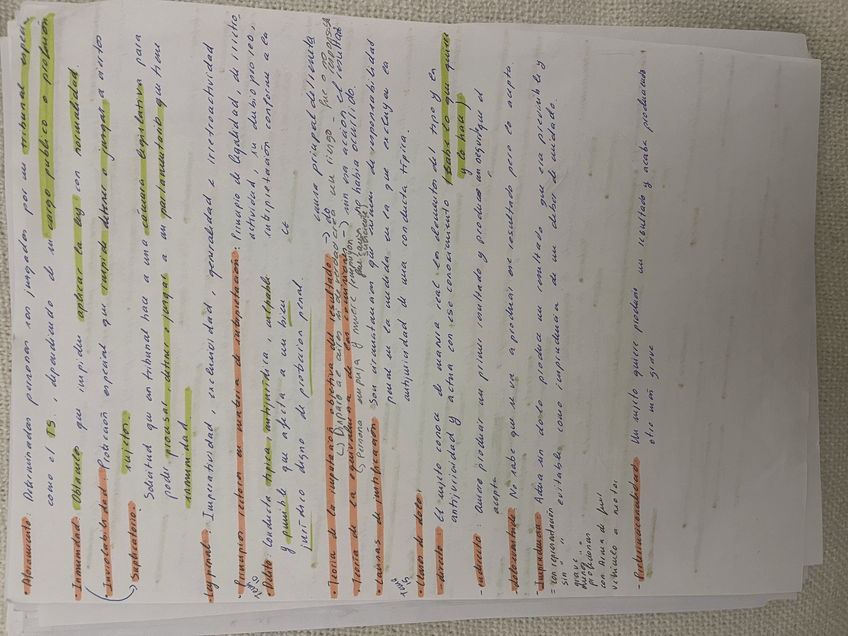 · Aforamiento: Determinadas personas son juzgadas por un tribunal
como el TS, dependiendo de su cargo público o profesión
· Inmunidad: Obstáculo que impide aplicar la ley con normalidad
· Inviolabilidad: Protección especial que impide detener o juzgar a ciertos
sujetos.
→ Suplicatorio: Solicitud que un tribunal hace a una cámara legislativa para
poder procesar, detener o juzgar a un parlamentario que tiene
inmunidad
Ley penal: Imperatividad, exclusividad, generalidad e irretroactividad
· Principios rectores en materia de interpretación: Principio de legalidad, de
in dubio pro reo,
interpretación conforme a la
CE
· Delito: Conducta típica, antijurídica, culpable
y punible que afecta a un bien
jurídico digno de protección penal.
· Teoría de la imputación objetiva del resultado → causa principal del resultado
· Teoría de la equivalencia de las condiciones → sin esa acción el resultado
no habría ocurrido.
↳ Persona empuja y muere
· Causas de justificación: Son circunstancias que eximen de responsabilidad
penal en la medida en la que excluyen la
antijuricidad de una conducta típica.
· Clases de dolo:
- directo: El sujeto conoce de manera real los elementos del tipo y su
antijuricidad y actúa con ese conocimiento (Sabe lo que quiere
y lo hace)
- indirecto: Quiere producir un primer resultado y produce
acepta.
- dolo eventual: No sabe que se va a producir ese resultado pero lo acepta.
- Imprudencia: Actúa sin dolo produce un resultado que era previsible y
evitable, como imprudencia de un deber de cuidado.
= con representación
sin " "
grave
menos "
profesional
con arma de fuego
vehículo a motor
- Preterintencionalidad: Un sujeto quiere producir un resultado y acaba produciendo
otro más grave